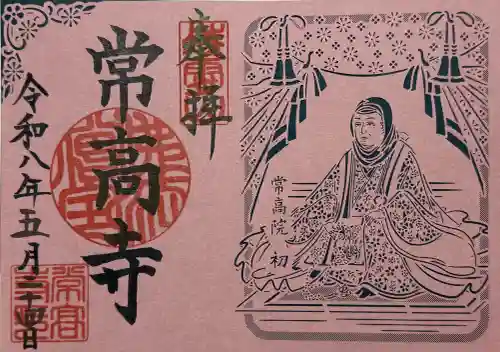 奉拝
常高寺
令和八年五月二十四日
常高院 初
常高